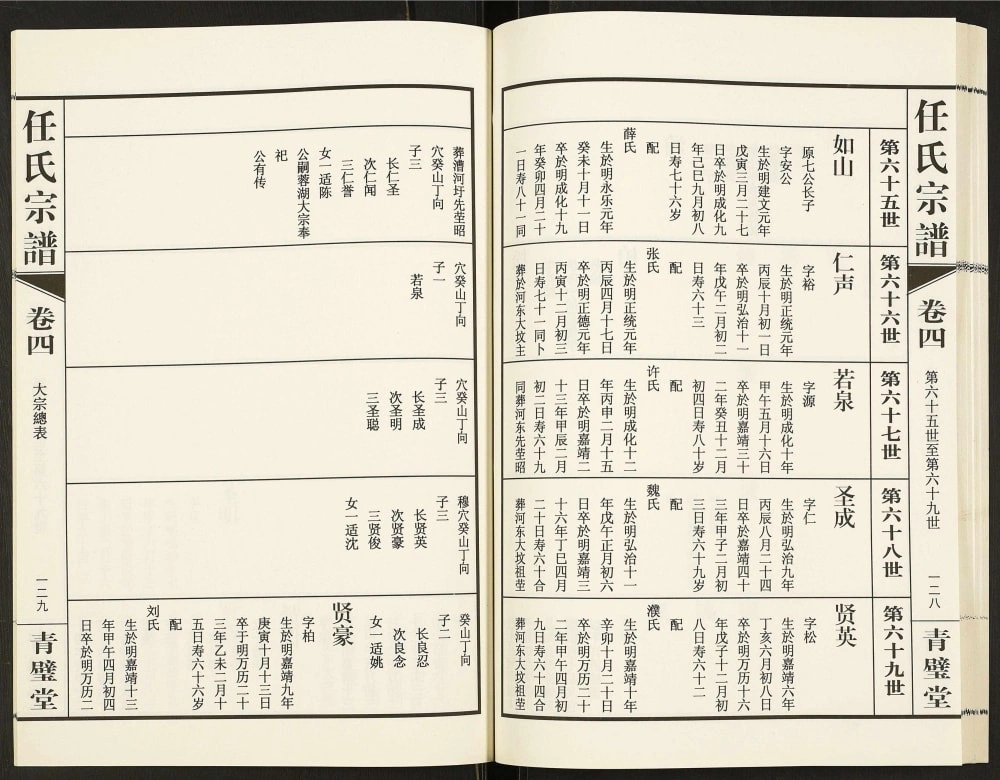 任氏宗譜
卷四
第六十五世至第六十九世
一二八
青璧堂
第六十五世
如山
原七公长子
字安公
生於明建文元年
戊寅三月二十七
日卒於明成化九
年己巳九月初八
日寿七十六岁
配
薛氏
生於明永乐元年
癸未十月十一日
卒於明成化十九
年癸卯四月二十
一日寿八十一同
第六十六世
仁声
字裕
生於明正统元年
丙辰十月初一日
卒於明弘治十一
年戊午二月初二
日寿六十三
配
张氏
生於明正统元年
丙辰四月十七日
卒於明正德元年
丙寅十二月初三
日寿七十一同卜
葬於河东大坟主
第六十七世
若泉
字源
生於明成化十年
甲午五月十六日
卒於明嘉靖三十
二年癸丑十二月
初四日寿八十岁
配
许氏
生於明成化十二
年丙申二月十五
日卒於明嘉靖二
十三年甲辰二月
初二日寿六十九
同葬河东先茔昭
第六十八世
圣成
字仁
生於明弘治九年
丙辰八月二十四
日卒於嘉靖四十
三年甲子二月初
三日寿六十九岁
配
魏氏
生於明弘治十一
年戊午正月初六
日卒於明嘉靖三
十六年丁巳四月
二十日寿六十合
葬河东大坟祖茔
第六十九世
贤英
字松
生於明嘉靖六年
丁亥六月初八日
卒於明万历十六
年戊子十二月初
八日寿六十二
配
濮氏
生於明嘉靖十年
辛卯十月二十日
卒於明万历二十
二年甲午四月初
九日寿六十四合
葬河东大坟祖茔
葬漕河圩先茔昭
穴癸山丁向
子三
长仁圣
次仁闻
三仁誉
女一适陈
公嗣蓉湖大宗奉
祀
公有传
穴癸山丁向
子一
若泉
穴癸山丁向
子三
长圣成
次圣明
三圣聪
穆穴癸山丁向
子三
长贤英
次贤豪
三贤俊
女一适沈
癸山丁向
子二
长良忍
次良念
女一适姚
贤豪
字柏
生於明嘉靖九年
庚寅十月十三日
卒于明万历二十
三年乙未二月十
五日寿六十六岁
配
刘氏
生於明嘉靖十三
年甲午四月初四
日卒於明万历二
任氏宗譜
卷四
大宗總表
一二九
青璧堂